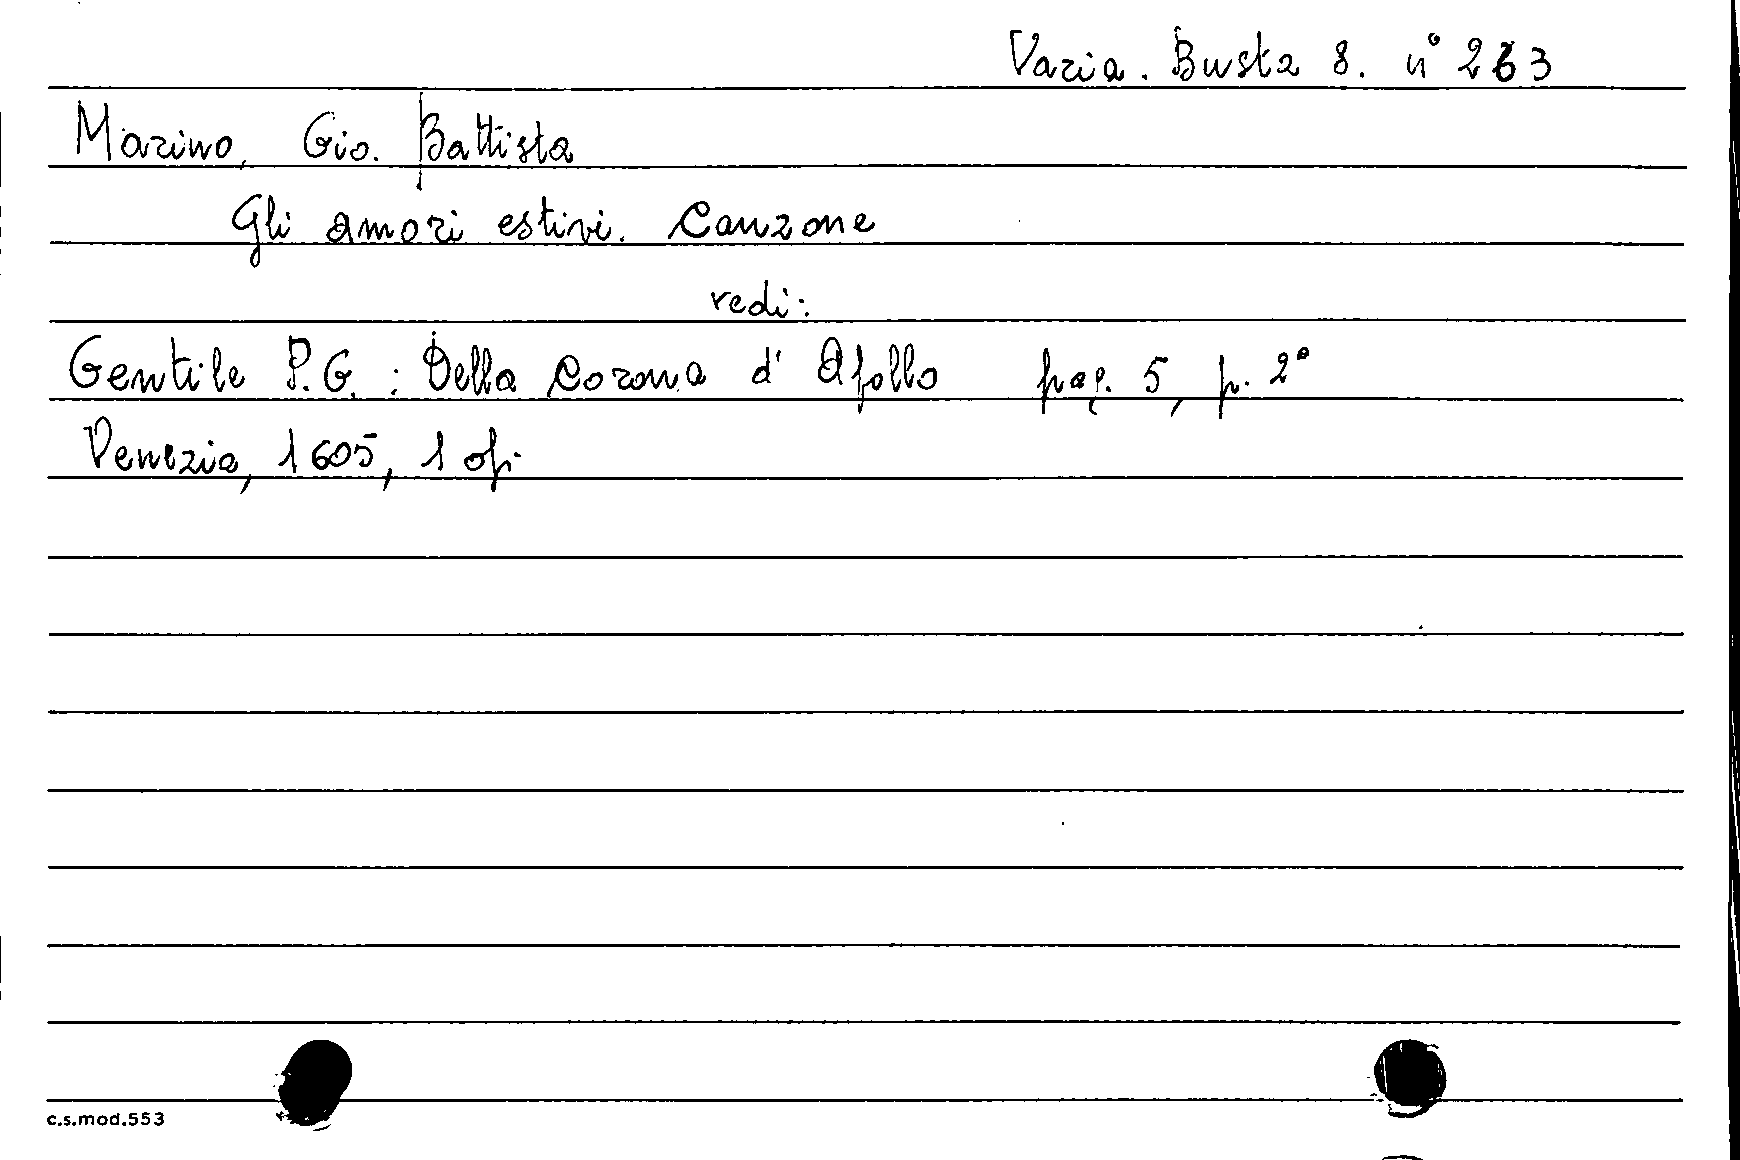 Varia. Busta 8. n° 263
Marino, Gio. Battista
Gli amori estivi. Canzone
vedi:
Gentile P.G. : Della Corona d' Apollo pag. 5, p. 2ª
Venezia, 1605, 1 op.
c.s.mod.553